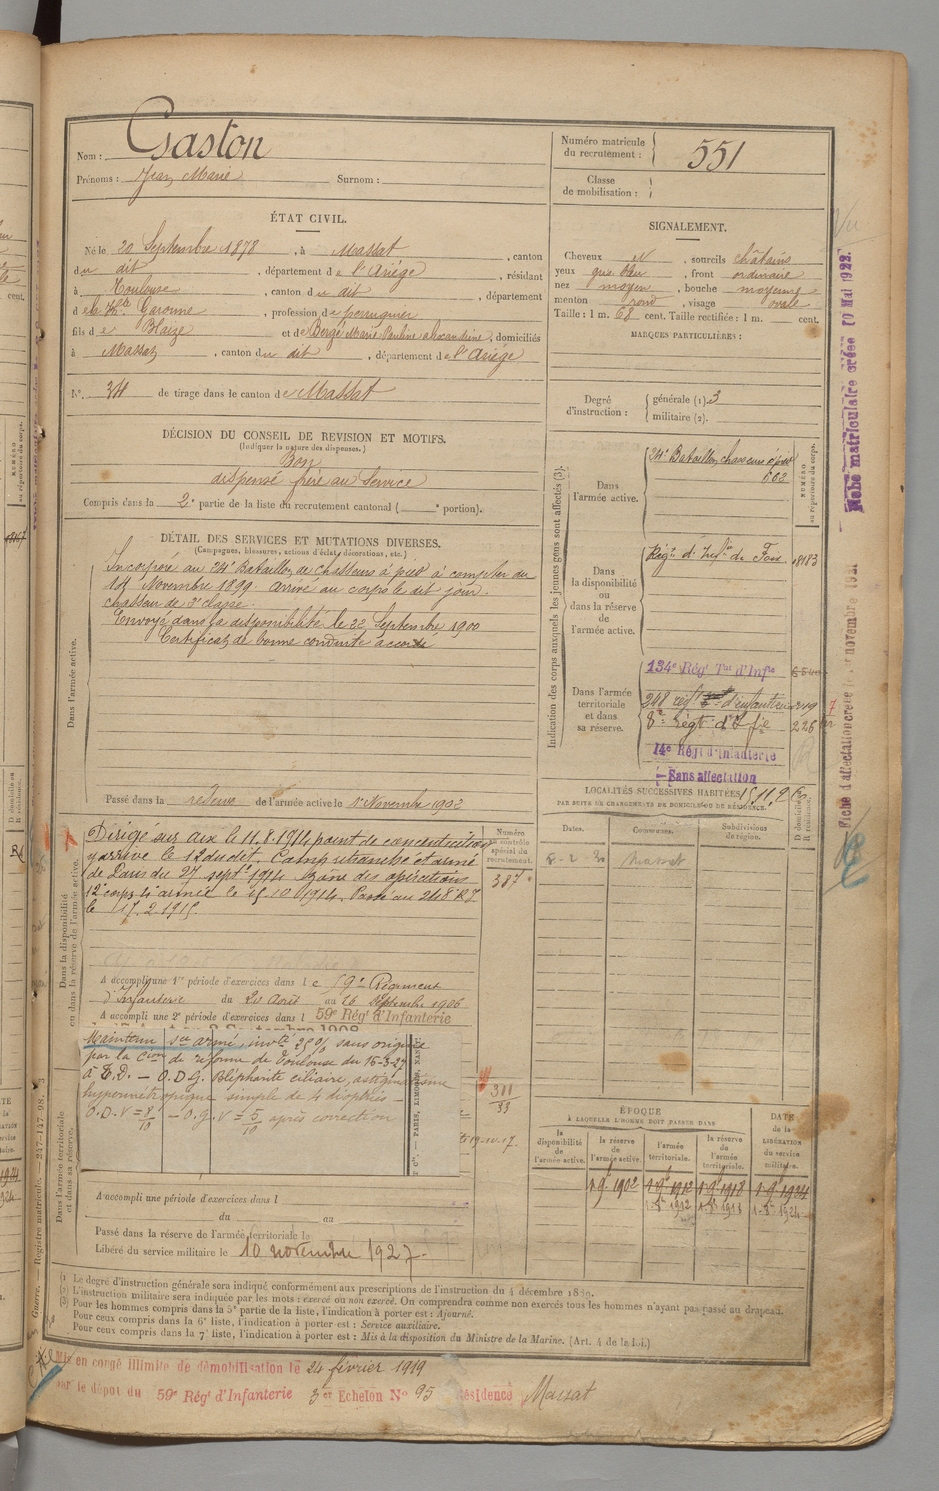 Nom : Gaston
Prénoms : Jean Marie Surnom :
Numéro matricule du recrutement : 551
Classe de mobilisation :
ÉTAT CIVIL.
Né le 20 Septembre 1878, à Massat, canton
du dit, département de l'Ariège, résidant
à Toulouse, canton du dit, département
de la Hte Garonne, profession de perruquier
fils de Blaize et de Bergé Marie Pauline Alexandrine, domiciliés
à Massat, canton du dit, département de l'Ariège
N° 34 de tirage dans le canton de Massat
SIGNALEMENT.
Cheveux N, sourcils châtains
yeux gris bleu, front ordinaire
nez moyen, bouche moyenne
menton rond, visage ovale
Taille : 1 m. 68 cent. Taille rectifiée : 1 m. cent.
MARQUES PARTICULIÈRES :
Degré d'instruction : générale (1). 3
militaire (2).
DÉCISION DU CONSEIL DE REVISION ET MOTIFS.
(Indiquer la nature des dispenses.)
Bon
dispensé frère au Service
Compris dans la 2e partie de la liste du recrutement cantonal ( e portion).
DÉTAIL DES SERVICES ET MUTATIONS DIVERSES.
(Campagnes, blessures, actions d'éclat, décorations, etc.)
Dans l'armée active.
Incorporé au 24e Bataillon de Chasseurs à pied à compter du
14 Novembre 1899. Arrivé au corps le dit jour.
chasseur de 2e classe.
Envoyé dans la disponibilité le 22 Septembre 1900
Certificat de bonne conduite accordé
Passé dans la réserve de l'armée active le 1er Novembre 1902
Indication des corps auxquels les jeunes gens sont affectés (3).
NUMÉRO au répertoire du corps.
Dans l'armée active.
24e Bataillon chasseurs à pied
Dans la disponibilité ou dans la réserve de l'armée active.
Régt d'Infie de Foix
Dans l'armée territoriale et dans sa réserve.
134e Régt Tal d'Infie
248 régt d'infanterie
8e Régt d'Ifie
14e Régt d'Infanterie
Sans affectation
LOCALITÉS SUCCESSIVES HABITÉES
PAR SUITE DE CHANGEMENTS DE DOMICILE OU DE RÉSIDENCE.
Dates. Communes. Subdivisions de région. D domicile ou R résidence.
Massat
Dans la disponibilité ou dans la réserve de l'armée active.
Numéro au contrôle spécial du recrutement.
387
Dirigé sur Aix le 11.8.1914 point de concentration
y arrive le 12 du dit. Camp retranché et armé
de Paris du 27 septe 1914. Zône des opérations
12e corps 4e armée le 15.10.1914. Passé au 248e R.I.
le 17.2.1915.
A accompli une 1re période d'exercices dans le 59e Régiment
d'Infanterie du 20 Août au 16 Septembre 1906
A accompli une 2e période d'exercices dans l 59e Régt d'Infanterie
Maintenu sce armé, invté 25% sans origine
par la Cion de réforme de Toulouse du 15-3-27
à T.D. — O.D.G. Blépharite ciliaire, astigmatisme
hypermétropique simple de 4 dioptries —
O.D. V = 8/10 — O.G. V = 5/10 après correction
311
33
Dans l'armée territoriale et dans sa réserve.
A accompli une période d'exercices dans l
du au
Passé dans la réserve de l'armée territoriale le
Libéré du service militaire le 10 novembre 1927.
ÉPOQUE
À LAQUELLE L'HOMME DOIT PASSER DANS
la disponibilité de l'armée active. la réserve de l'armée active. l'armée territoriale. la réserve de l'armée territoriale. DATE de la LIBÉRATION du service militaire.
1-9e 1902 1-9e 1912 1-9e 1918 1-9e 1924
1-8e 1912 1-8e 1918 1-8e 1924
(1) Le degré d'instruction générale sera indiqué conformément aux prescriptions de l'instruction du 4 décembre 1889.
(2) L'instruction militaire sera indiquée par les mots : exercé ou non exercé. On comprendra comme non exercés tous les hommes n'ayant pas passé au drapeau.
(3) Pour les hommes compris dans la 5e partie de la liste, l'indication à porter est : Ajourné.
Pour ceux compris dans la 6e liste, l'indication à porter est : Service auxiliaire.
Pour ceux compris dans la 7e liste, l'indication à porter est : Mis à la disposition du Ministre de la Marine. (Art. 4 de la loi.)
Mis en congé illimité de démobilisation le 24 février 1919
par le dépôt du 59e Régt d'Infanterie 3e Echelon N° 95 Résidence Massat
Fiche matriculaire créée 10 Mai 1922.
Fiche d'affectation créée le novembre 1921